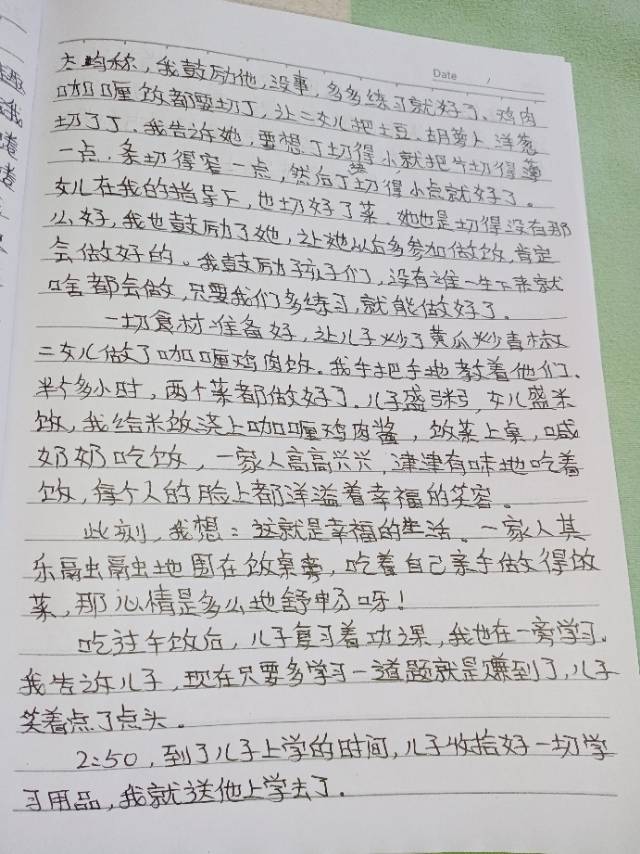 Date
太均称，我鼓励他，没事，多多练习就好了、鸡肉
咖喱饭都要切丁，让二女儿把土豆、胡萝卜、洋葱
切了丁，我告诉她，要想丁切得小就把片切得薄
一点，条切得窄一点，然后丁切得小点就好了。
女儿在我的指导下，也切好了菜，她也是切得没有那
么好，我也鼓励了她，让她以后多参加做饭，肯定
会做好的。我鼓励孩子们，没有谁一生下来就
啥都会做，只要我们多练习，就能做好了。
一切食材准备好，让儿子炒了黄瓜炒青椒
二女儿做了咖喱鸡肉饭。我手把手地教着他们、
半个多小时，两个菜都做好了。儿子盛粥，女儿盛米
饭，我给米饭浇上咖喱鸡肉酱，饭菜上桌，喊
奶奶吃饭，一家人高高兴兴，津津有味地吃着
饭，每个人的脸上都洋溢着幸福的笑容。
此刻，我想：这就是幸福的生活。一家人其
乐融融地围在饭桌旁，吃着自己亲手做得饭
菜，那心情是多么地舒畅呀！
吃过午饭后，儿子复习着功课，我也在一旁学习。
我告诉儿子，现在只要多学习一道题就是赚到了，儿子
笑着点了点头。
2:50，到了儿子上学的时间，儿子收拾好一切学
习用品，我就送他上学去了.